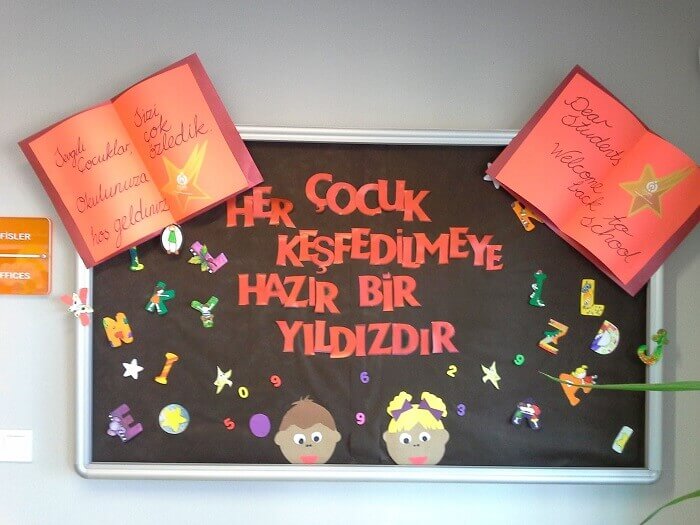 Sevgili
Çocuklar,
Okulunuza
hoş geldiniz
Sizi
çok
özledik.
Dear
Students
Welcome
back to
School
HER ÇOCUK
KEŞFEDİLMEYE
HAZIR BİR
YILDIZDIR
OFİSLER
OFFICES